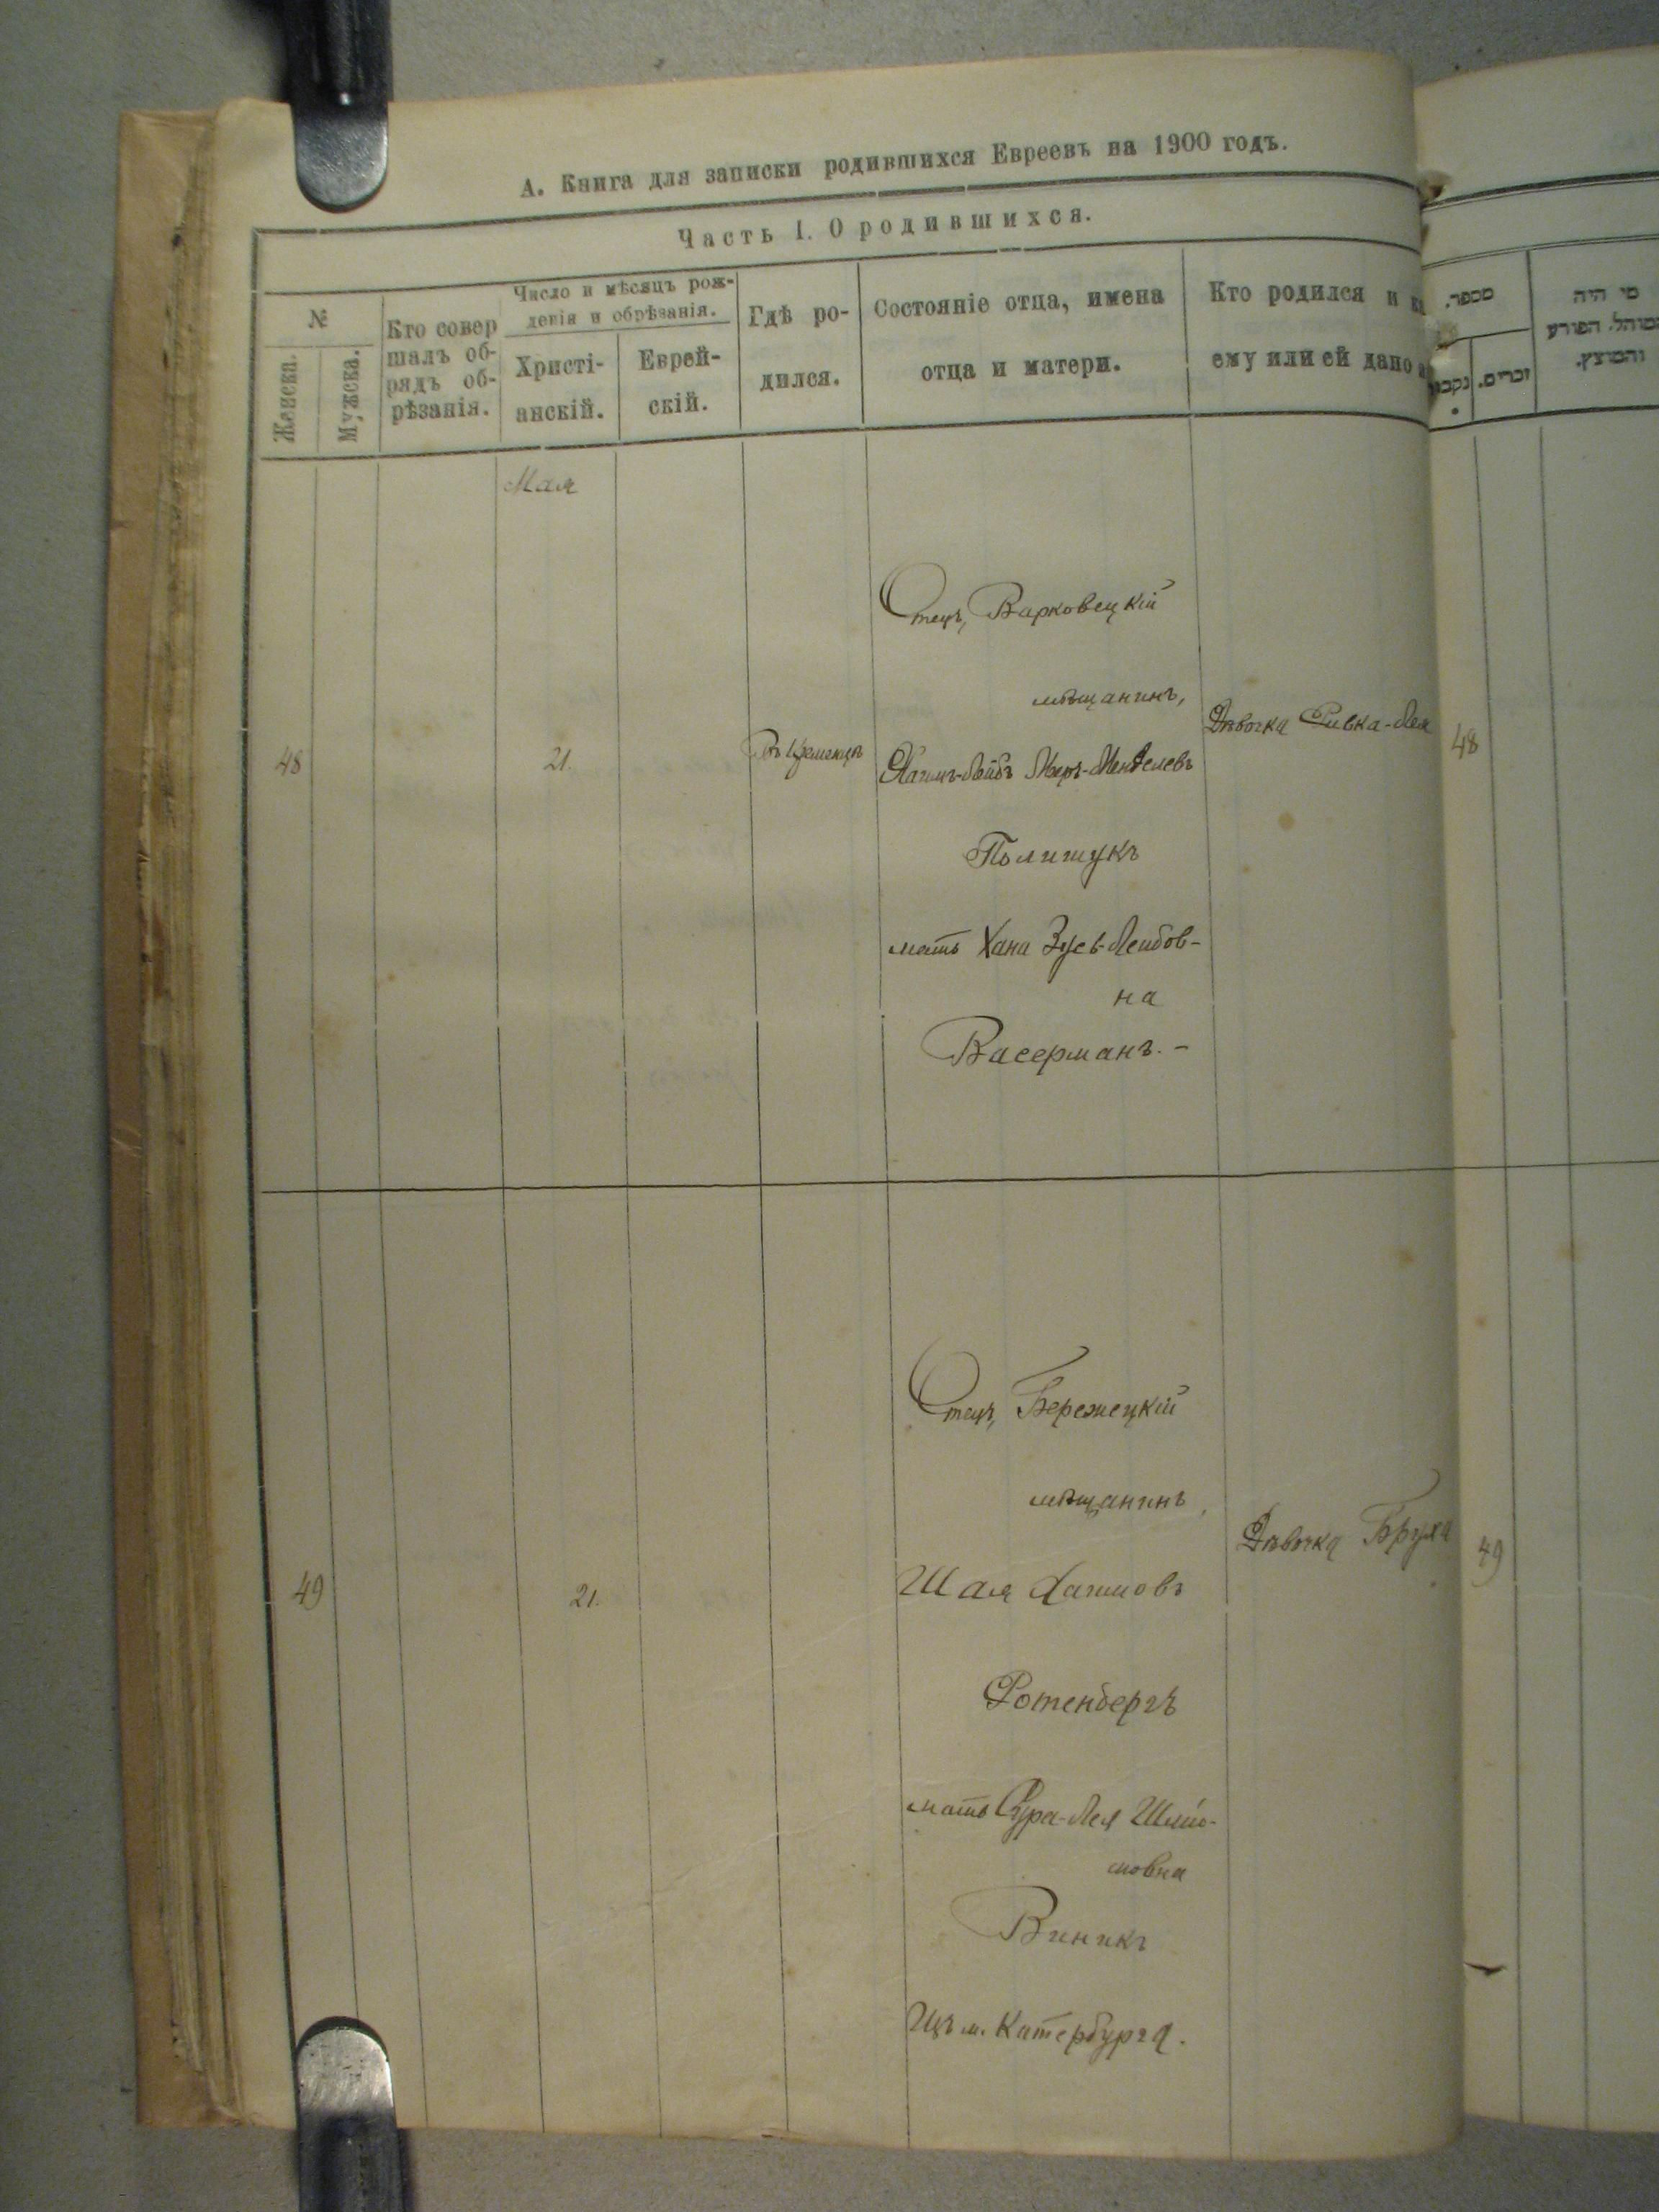 А. Книга для записки родившихся Евреевъ на 1900 годъ.
Часть I. О родившихся.
№
Женска.
Мужска.
Кто совер
шалъ об-
рядъ об-
рѣзанія.
Число и мѣсяцъ рож-
денія и обрѣзанія.
Христі-
анскій.
Еврей-
скій.
Гдѣ ро-
дился.
Состояніе отца, имена
отца и матери.
Кто родился и
ему или ей дано
מספר.
זכרים.
מי היה
המוהל. הפורע
והמוצץ.
Мая
48
21.
Въ Кременцѣ
Отецъ, Варковецкій
мѣщанинъ,
Хаимъ-Лейбъ Меръ-Менделевъ
Полищукъ
мать Хана Зусь-Лейбов-
на
Васерманъ. -
Дѣвочка Ривка-Лея
48
49
21.
Отецъ, Бережецкій
мѣщанинъ,
Шая Хаимовъ
Ротенбергъ
мать Сура-Лея Шлио-
мовна
Виникъ
Изъ м. Катербурга.
Дѣвочка Бруха
49